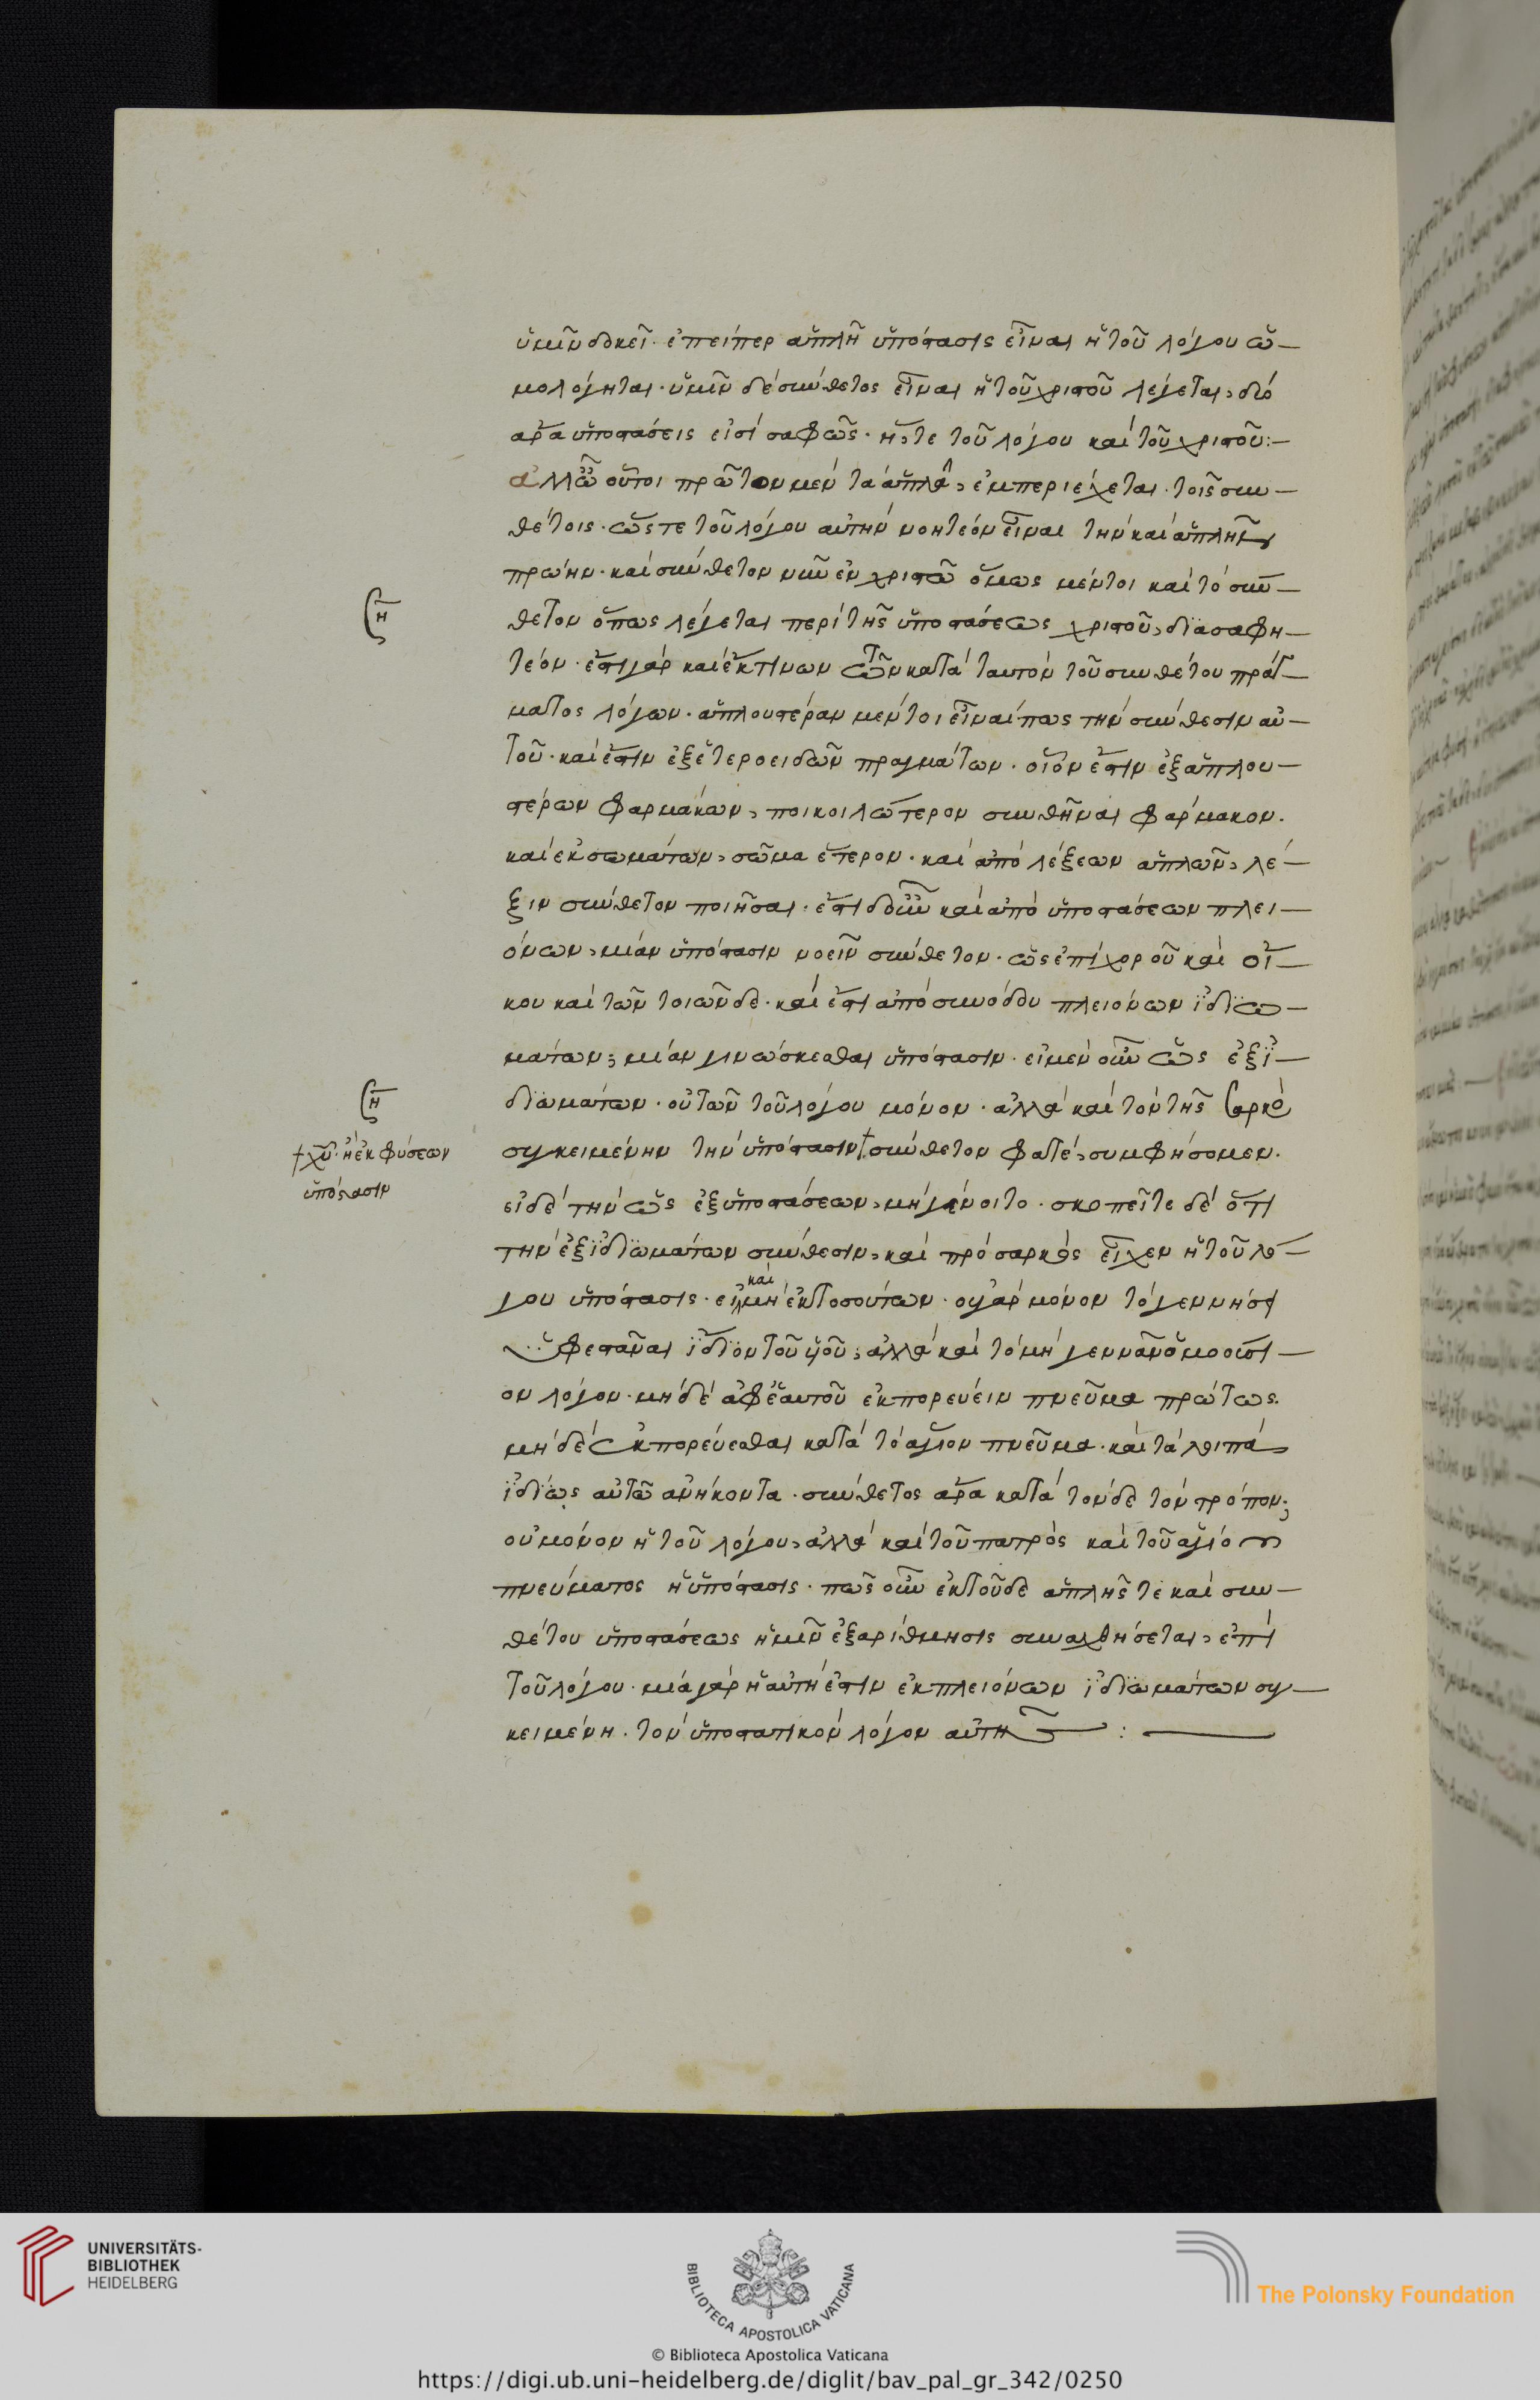 ὑμῖν δοκεῖ· ἐπείπερ ἁπλῆ ὑπόστασις εἶναι ἡ τοῦ λόγου ὡ-
μολόγηται· ὑμῖν δὲ σύνθετος εἶναι ἡ τοῦ χριστοῦ λέγεται, δύο
ἄρα ὑποστάσεις εἰσὶ σαφῶς· ἥ, τε τοῦ λόγου καὶ τοῦ χριστοῦ:-
ἀλλ' ὦ οὗτοι πρῶτον μὲν τὰ ἁπλᾶ, ἐμπεριέχεται τοῖς συν-
θέτοις· ὥστε τοῦ λόγου αὐτὴν νοητέον εἶναι τὴν καὶ ἁπλῆν
πρώην· καὶ σύνθετον νῦν ἐν χριστῶ ὅμως μέντοι καὶ τὸ σύν-
θετον ὅπως λέγεται περὶ τῆς ὑποστάσεως χριστοῦ, διασαφη-
τέον· ἔστι γὰρ καὶ ἔκ τινων τῶν κατὰ ταυτὸν τοῦ συνθέτου πράγ-
ματος λόγων· ἁπλουστέραν μέντοι εἶναί πως τὴν σύνθεσιν αὐ-
τοῦ· καὶ ἔστιν ἐξ ἑτεροειδῶν πραγμάτων· οἷόν ἐστιν ἐξ ἁπλου-
στέρων φαρμάκων, ποικοιλώτερον συνθῆναι φάρμακον·
καὶ ἐκ σωμάτων, σῶμα ἕτερον· καὶ ἀπὸ λέξεων ἁπλῶν, λέ-
ξιν σύνθετον ποιῆσαι· ἔστι δ' οὖν καὶ ἀπὸ ὑποστάσεων πλει-
όνων, μίαν ὑπόστασιν νοεῖν σύνθετον· ὡς ἐπὶ χοροῦ καὶ οἴ-
κου καὶ τῶν τοιῶνδε· καὶ ἔστι ἀπὸ συνόδου πλειόνων ἰδιω-
μάτων, μίαν γινώσκεσθαι ὑπόστασιν· εἰ μὲν οὖν ὡς ἐξ ἰ-
διωμάτων· οὐ τῶν τοῦ λόγου μόνον· ἀλλὰ καὶ τὸν τῆς σαρκὸς
συγκειμένην τὴν ὑπόστασιν † σύνθετον φατέ, συμφήσομεν·
εἰ δὲ τὴν ὡς ἐξ ὑποστάσεων, μὴ γένοιτο· σκοπεῖτε δὲ ὅτι
τὴν ἐξ ἰδιωμάτων σύνθεσιν, καὶ πρὸ σαρκὸς εἶχεν ἡ τοῦ λό-
γου ὑπόστασις· εἰ καὶ μὴ ἐκ τοσούτων· οὐ γὰρ μόνον τὸ γεννήσει
ὑφεστάναι ἴδιον τοῦ υἱοῦ, ἀλλὰ καὶ τὸ μὴ γεννᾶν ὁμοούσι-
ον λόγον· μηδὲ ἀφ' ἑαυτοῦ ἐκπορεύειν πνεῦμα πρώτως·
μηδὲ ἐκπορεύεσθαι κατὰ τὸ ἅγιον πνεῦμα· καὶ τὰ λοιπὰ
ἰδίως αὐτῶ ἀνήκοντα· σύνθετος ἄρα κατὰ τόνδε τὸν τρόπον·
οὐ μόνον ἡ τοῦ λόγου, ἀλλὰ καὶ τοῦ πατρὸς καὶ τοῦ ἁγίου
πνεύματος ἡ ὑπόστασις· πῶς οὖν ἐκ τοῦδε ἁπλῆς τὲ καὶ συν-
θέτου ὑποστάσεως ἡμῖν ἐξαρίθμησις συναχθήσεται, ἐπὶ
τοῦ λόγου· μία γὰρ ἡ αὐτή ἐστιν ἐκ πλειόνων ἰδιωμάτων συγ-
κειμένη· τὸν ὑποστατικὸν λόγον αὐτῆς :
† χυ· ἢ ἐκ φύσεων
ὑπόστασιν
UNIVERSITÄTS-
BIBLIOTHEK
HEIDELBERG
BIBLIOTECA APOSTOLICA VATICANA
The Polonsky Foundation
© Biblioteca Apostolica Vaticana
https://digi.ub.uni-heidelberg.de/diglit/bav_pal_gr_342/0250